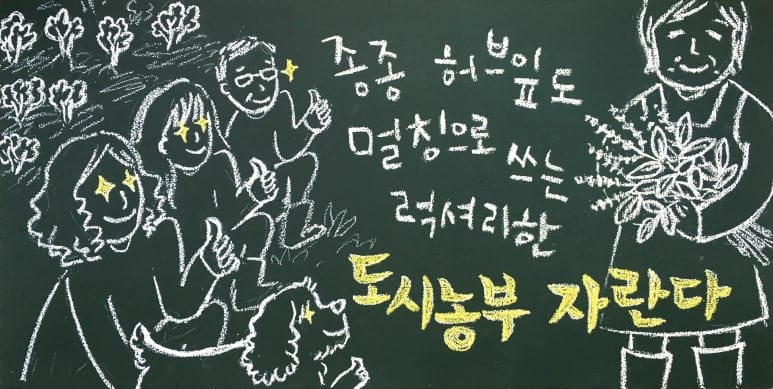 종종 허브잎도
멀칭으로 쓰는
럭셔리한
도시농부 자란다